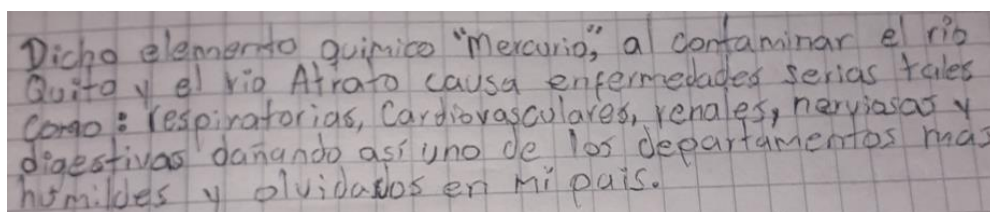 Dicho elemento quimico "Mercurio", al contaminar el rio
Quito y el rio Atrato causa enfermedades serias tales
como: respiratorias, Cardiovasculares, renales, nerviasas y
digestivas dañando así uno de los departamentos mas
humildes y olvidados en mi pais.